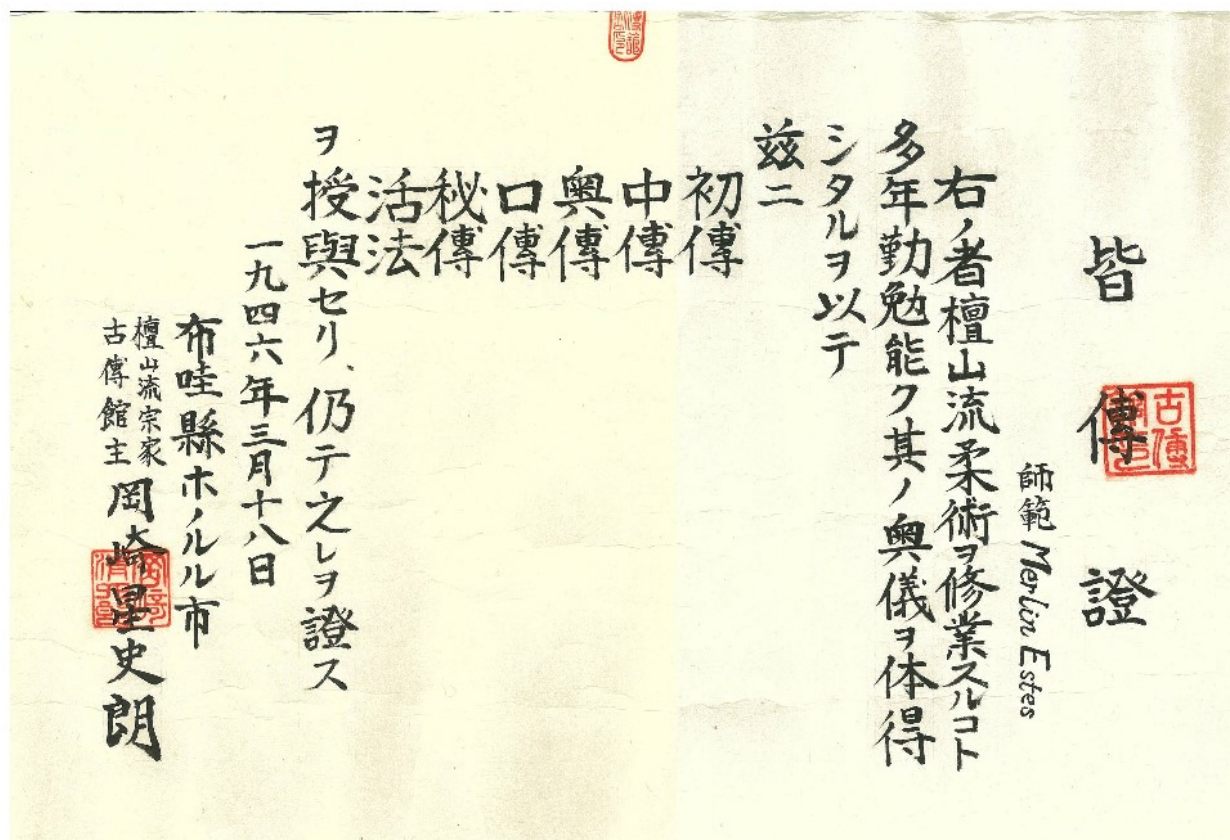 皆傳證
師範 Merlin Estes
右ノ者檀山流柔術ヲ修業スルコト
多年勤勉能ク其ノ奥儀ヲ体得
シタルヲ以テ
玆ニ
初傳
中傳
奥傳
口傳
秘傳
活法
ヲ授與セリ、仍テ之レヲ證ス
一九四六年三月十八日
布哇縣ホノルル市
檀山流宗家
古傳館主
岡崎星史朗